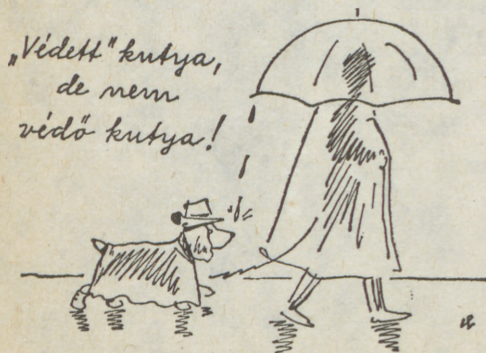 „Védett" kutya,
de nem
védő kutya!